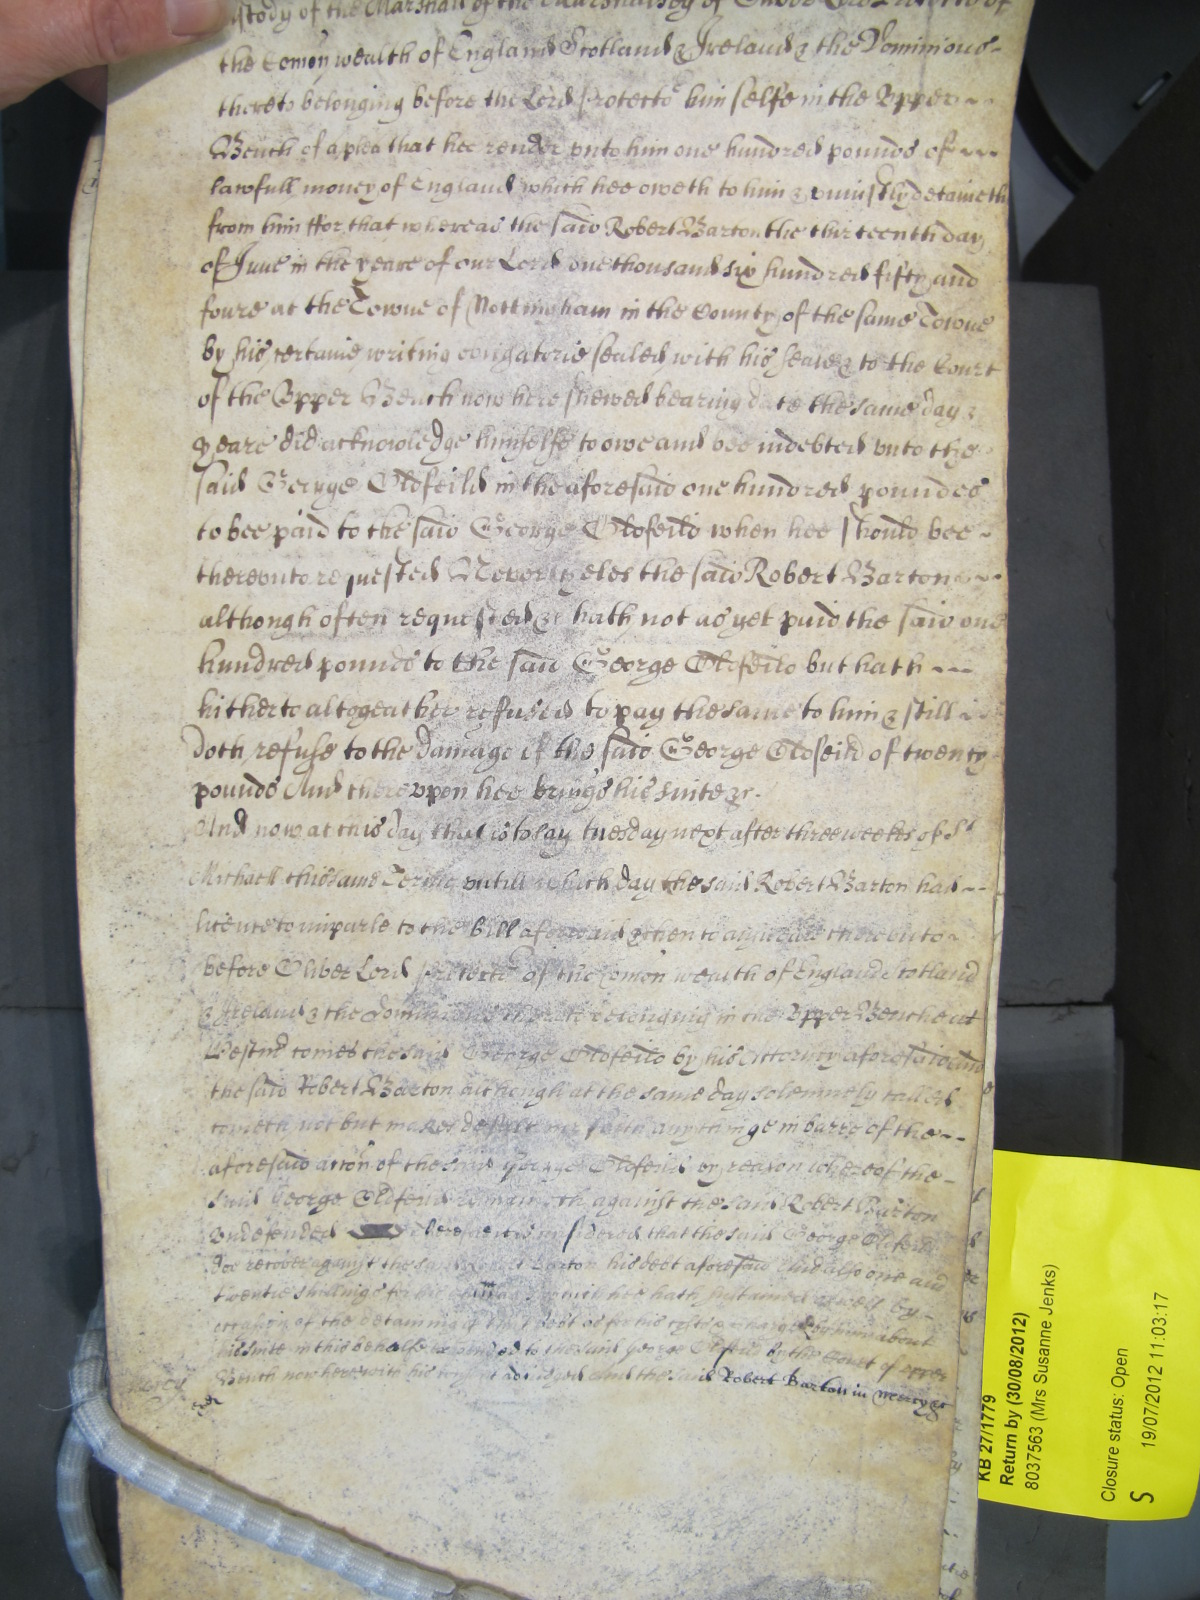 Custody of the Marshall of the Marshalsey of Oliver Lord Protector of
the Comon wealth of England Scotland & Ireland & the Dominions
thereto belonging before the Lord Protector him selfe in the Vpper
Bench of a plea that hee render vnto him one hundred pounds of
lawfull money of England which hee oweth to him & vniustly detaineth
from him ffor that whereas the said Robert Barton the thirteenth day
of June in the yeare of our Lord one thousand six hundred fifty and
foure at the Towne of Nottingham in the County of the same Towne
by his certaine writing obligatorie sealed with his seale & to the Court
of the Vpper Bench now here shewed bearing date the same day &
yeare did acknowledge himselfe to owe and bee indebted vnto the
said George Oldfeild in the aforesaid one hundred poundes
to bee paid to the said George Oldfeild when hee should bee
therevnto requested Neverthyeles the said Robert Barton
although often requested &c hath not as yet paid the said one
hundred pounds to the said George Oldfeild but hath
hitherto altogeather refused to pay the same to him & still
doth refuse to the damage of the said George Oldfeild of twenty
pounds And therevpon hee brings his suite &c.
And now at this day that is to say tuesday next after three weekes of St
Michaell this same Terme vntill which day the said Robert Barton had
licence to imparle to the bill aforesaid & then to answeare therevnto
before Oliver Lord Protector of the Comon wealth of England Scotland
& Ireland & the Dominions thereto belonging in the Vpper Benche at
Westmr comes the said George Oldfeild by his Attorny aforesaid and
the said Robert Barton although at the same day solemnely called
cometh not but makes default nor saith any thinge in barre of the
aforesaid acton of the said George Oldfeild by reason whereof the
said George Oldfeild remaineth against the said Robert Barton
vndefended therefore it is considered that the said George Oldfeild
doe recover against the said Robert Barton his debt aforesaid And also one and
twentie shillings for his damages which hee hath sustained as well by
occasion of the detaining of that debt as for his costs & charges by him about
his suite in this behalfe to the said George Oldfeild by the Court of Vpper
Bench now here with his consent adiudged And the said Robert Barton in mercy &c
mercy
KB 27/1779
Return by (30/08/2012)
8037563 (Mrs Susanne Jenks)
Closure status: Open
S 19/07/2012 11:03:17